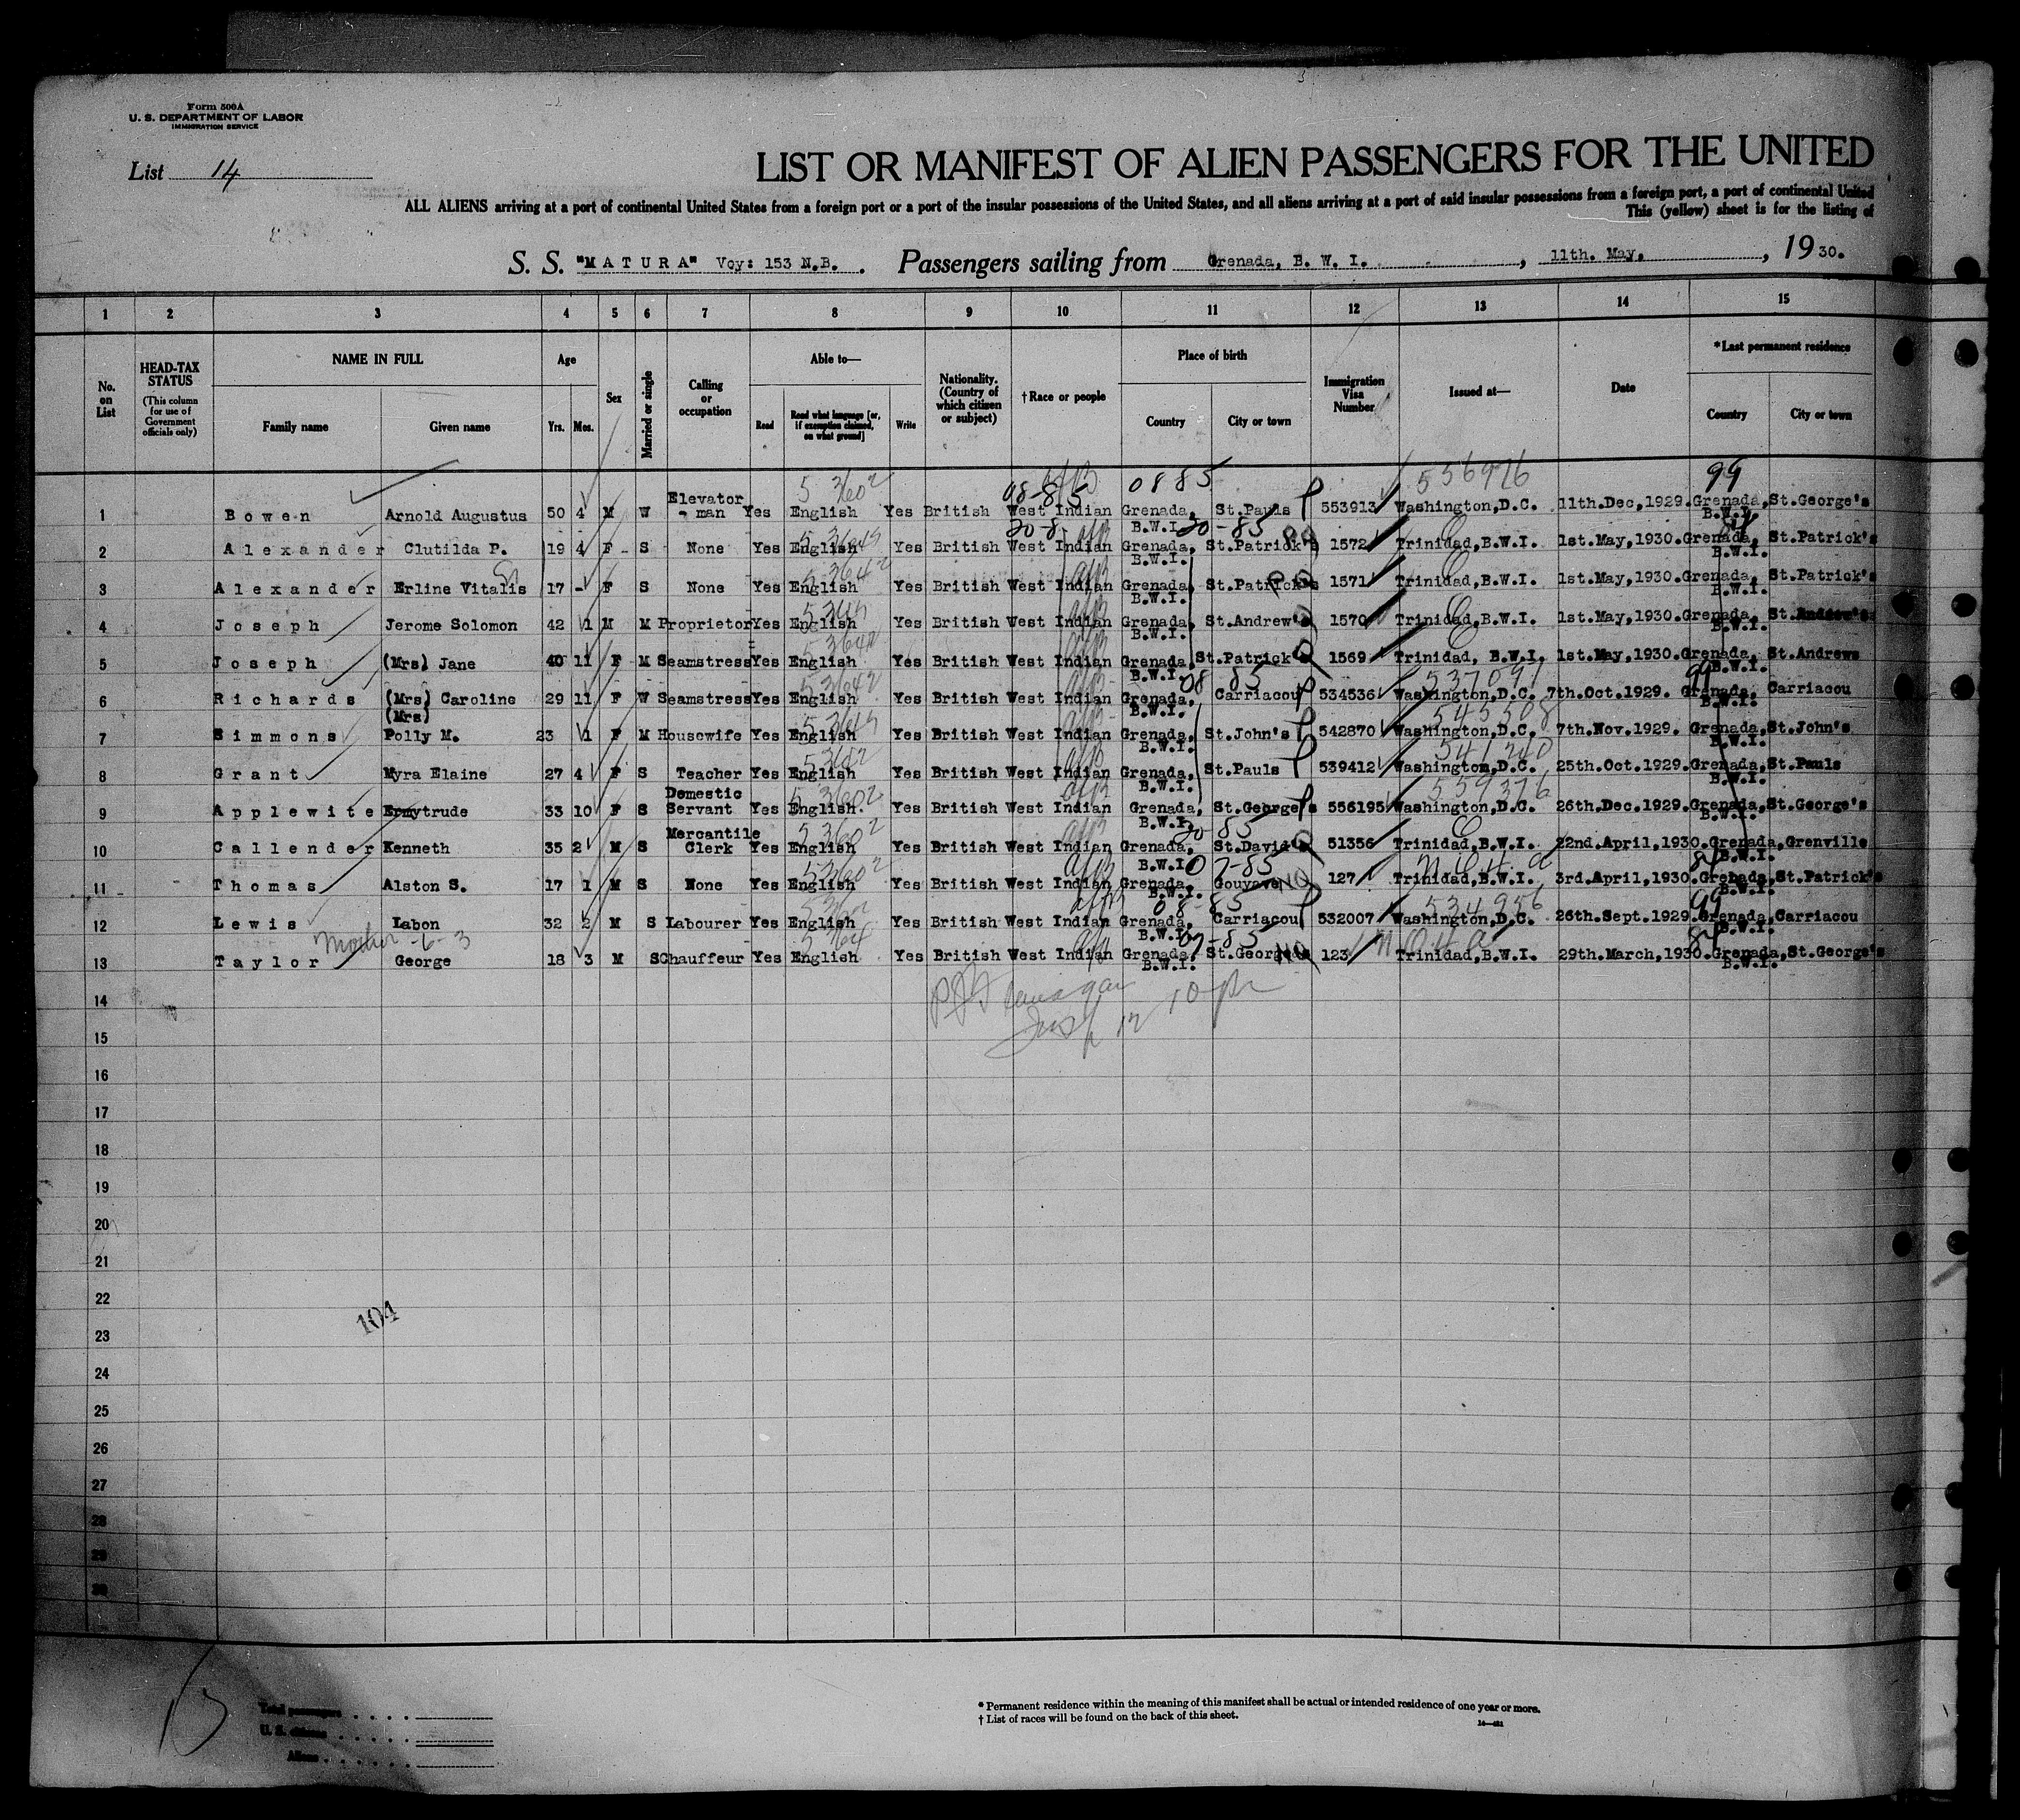 Form 500A
U. S. DEPARTMENT OF LABOR
IMMIGRATION SERVICE
List 14
LIST OR MANIFEST OF ALIEN PASSENGERS FOR THE UNITED
ALL ALIENS arriving at a port of continental United States from a foreign port or a port of the insular possessions of the United States, and all aliens arriving at a port of said insular possessions from a foreign port, a port of continental United
This (yellow) sheet is for the listing of
S. S. "MATURA" Voy: 153 N.B. . Passengers sailing from Grenada, B. W. I. , 11th. May, , 19 30.
1 2 3 4 5 6 7 8 9 10 11 12 13 14 15
No. on List
HEAD-TAX STATUS (This column for use of Government officials only)
NAME IN FULL Family name Given name
Age Yrs. Mos.
Sex
Married or single
Calling or occupation
Able to— Read Read what language [or, if exemption claimed, on what ground] Write
Nationality. (Country of which citizen or subject)
†Race or people
Place of birth Country City or town
Immigration Visa Number
Issued at—
Date
*Last permanent residence Country City or town
536976
5 3602 08-85 0885 99
1 Bowen Arnold Augustus 50 4 M W Elevator - man Yes English Yes British West Indian Grenada, B.W.I. St.Pauls 553913 Washington,D.C. 11th.Dec,1929. Grenada, B.W.I. St.George's
2 Alexander Clutilda P. 19 4 F S None Yes English Yes British West Indian Grenada, B.W.I. St.Patrick's 1572 Trinidad,B.W.I. 1st.May,1930. Grenada, B.W.I. St.Patrick's
3 Alexander Erline Vitalis 17 - F S None Yes English Yes British West Indian Grenada, B.W.I. St.Patrick's 1571 Trinidad,B.W.I. 1st.May,1930. Grenada, B.W.I. St.Patrick's
4 Joseph Jerome Solomon 42 1 M M Proprietor Yes English Yes British West Indian Grenada, B.W.I. St.Andrew's 1570 Trinidad,B.W.I. 1st.May,1930. Grenada, B.W.I. St.Andrew's
5 Joseph (Mrs) Jane 40 11 F M Seamstress Yes English Yes British West Indian Grenada, B.W.I. St.Patrick's 1569 Trinidad, B.W.I. 1st.May,1930. Grenada, B.W.I. St.Andrews
08-85 537091 99
6 Richards (Mrs) Caroline 29 11 F W Seamstress Yes English Yes British West Indian Grenada, B.W.I. Carriacou 534536 Washington,D.C. 7th.Oct.1929. Grenada, B.W.I. Carriacou
545508
7 Simmons (Mrs) Polly M. 23 1 F M Housewife Yes English Yes British West Indian Grenada, B.W.I. St.John's 542870 Washington,D.C. 7th.Nov.1929. Grenada, B.W.I. St.John's
541240
8 Grant Myra Elaine 27 4 F S Teacher Yes English Yes British West Indian Grenada, B.W.I. St.Pauls 539412 Washington,D.C. 25th.Oct.1929. Grenada, B.W.I. St.Pauls
559376
9 Applewite Ermytrude 33 10 F S Domestic Servant Yes English. Yes British West Indian Grenada, B.W.I. St.George's 556195 Washington,D.C. 26th.Dec.1929. Grenada, B.W.I. St.George's
20-85
10 Callender Kenneth 35 2 M S Mercantile Clerk Yes English Yes British West Indian Grenada, B.W.I. St.David 51356 Trinidad,B.W.I. 22nd.April,1930. Grenada, B.W.I. Grenville
07-85
11 Thomas Alston S. 17 1 M S None Yes English Yes British West Indian Grenada, B.W.I. Gouyave 127 Trinidad,B.W.I. 3rd.April,1930. Grenada, B.W.I. St.Patrick's
08-85 534956 99
12 Lewis Labon 32 2 M S Labourer Yes English Yes British West Indian Grenada, B.W.I. Carriacou 532007 Washington,D.C. 26th.Sept.1929. Grenada, B.W.I. Carriacou
Mother -6-3 07-85
13 Taylor George 18 3 M S Chauffeur Yes English Yes British West Indian Grenada, B.W.I. St.George's 123 Trinidad,B.W.I. 29th.March,1930. Grenada, B.W.I. St.George's
14
15
16
17
18
19
20
21
22
23
24
25
26
27
28
29
30
104
13
Total passengers
U. S. citizens
Aliens
* Permanent residence within the meaning of this manifest shall be actual or intended residence of one year or more.
† List of races will be found on the back of this sheet.